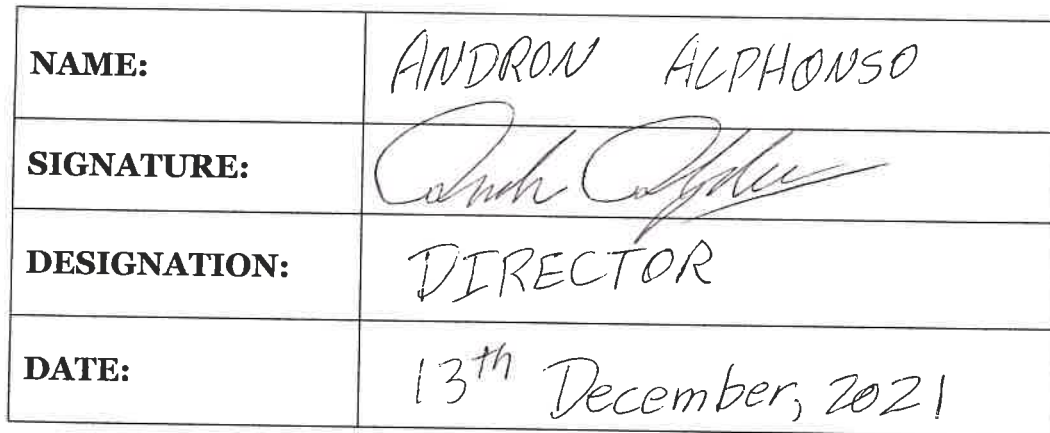 NAME: ANDRON ALPHONSO
SIGNATURE:
DESIGNATION: DIRECTOR
DATE: 13th December, 2021